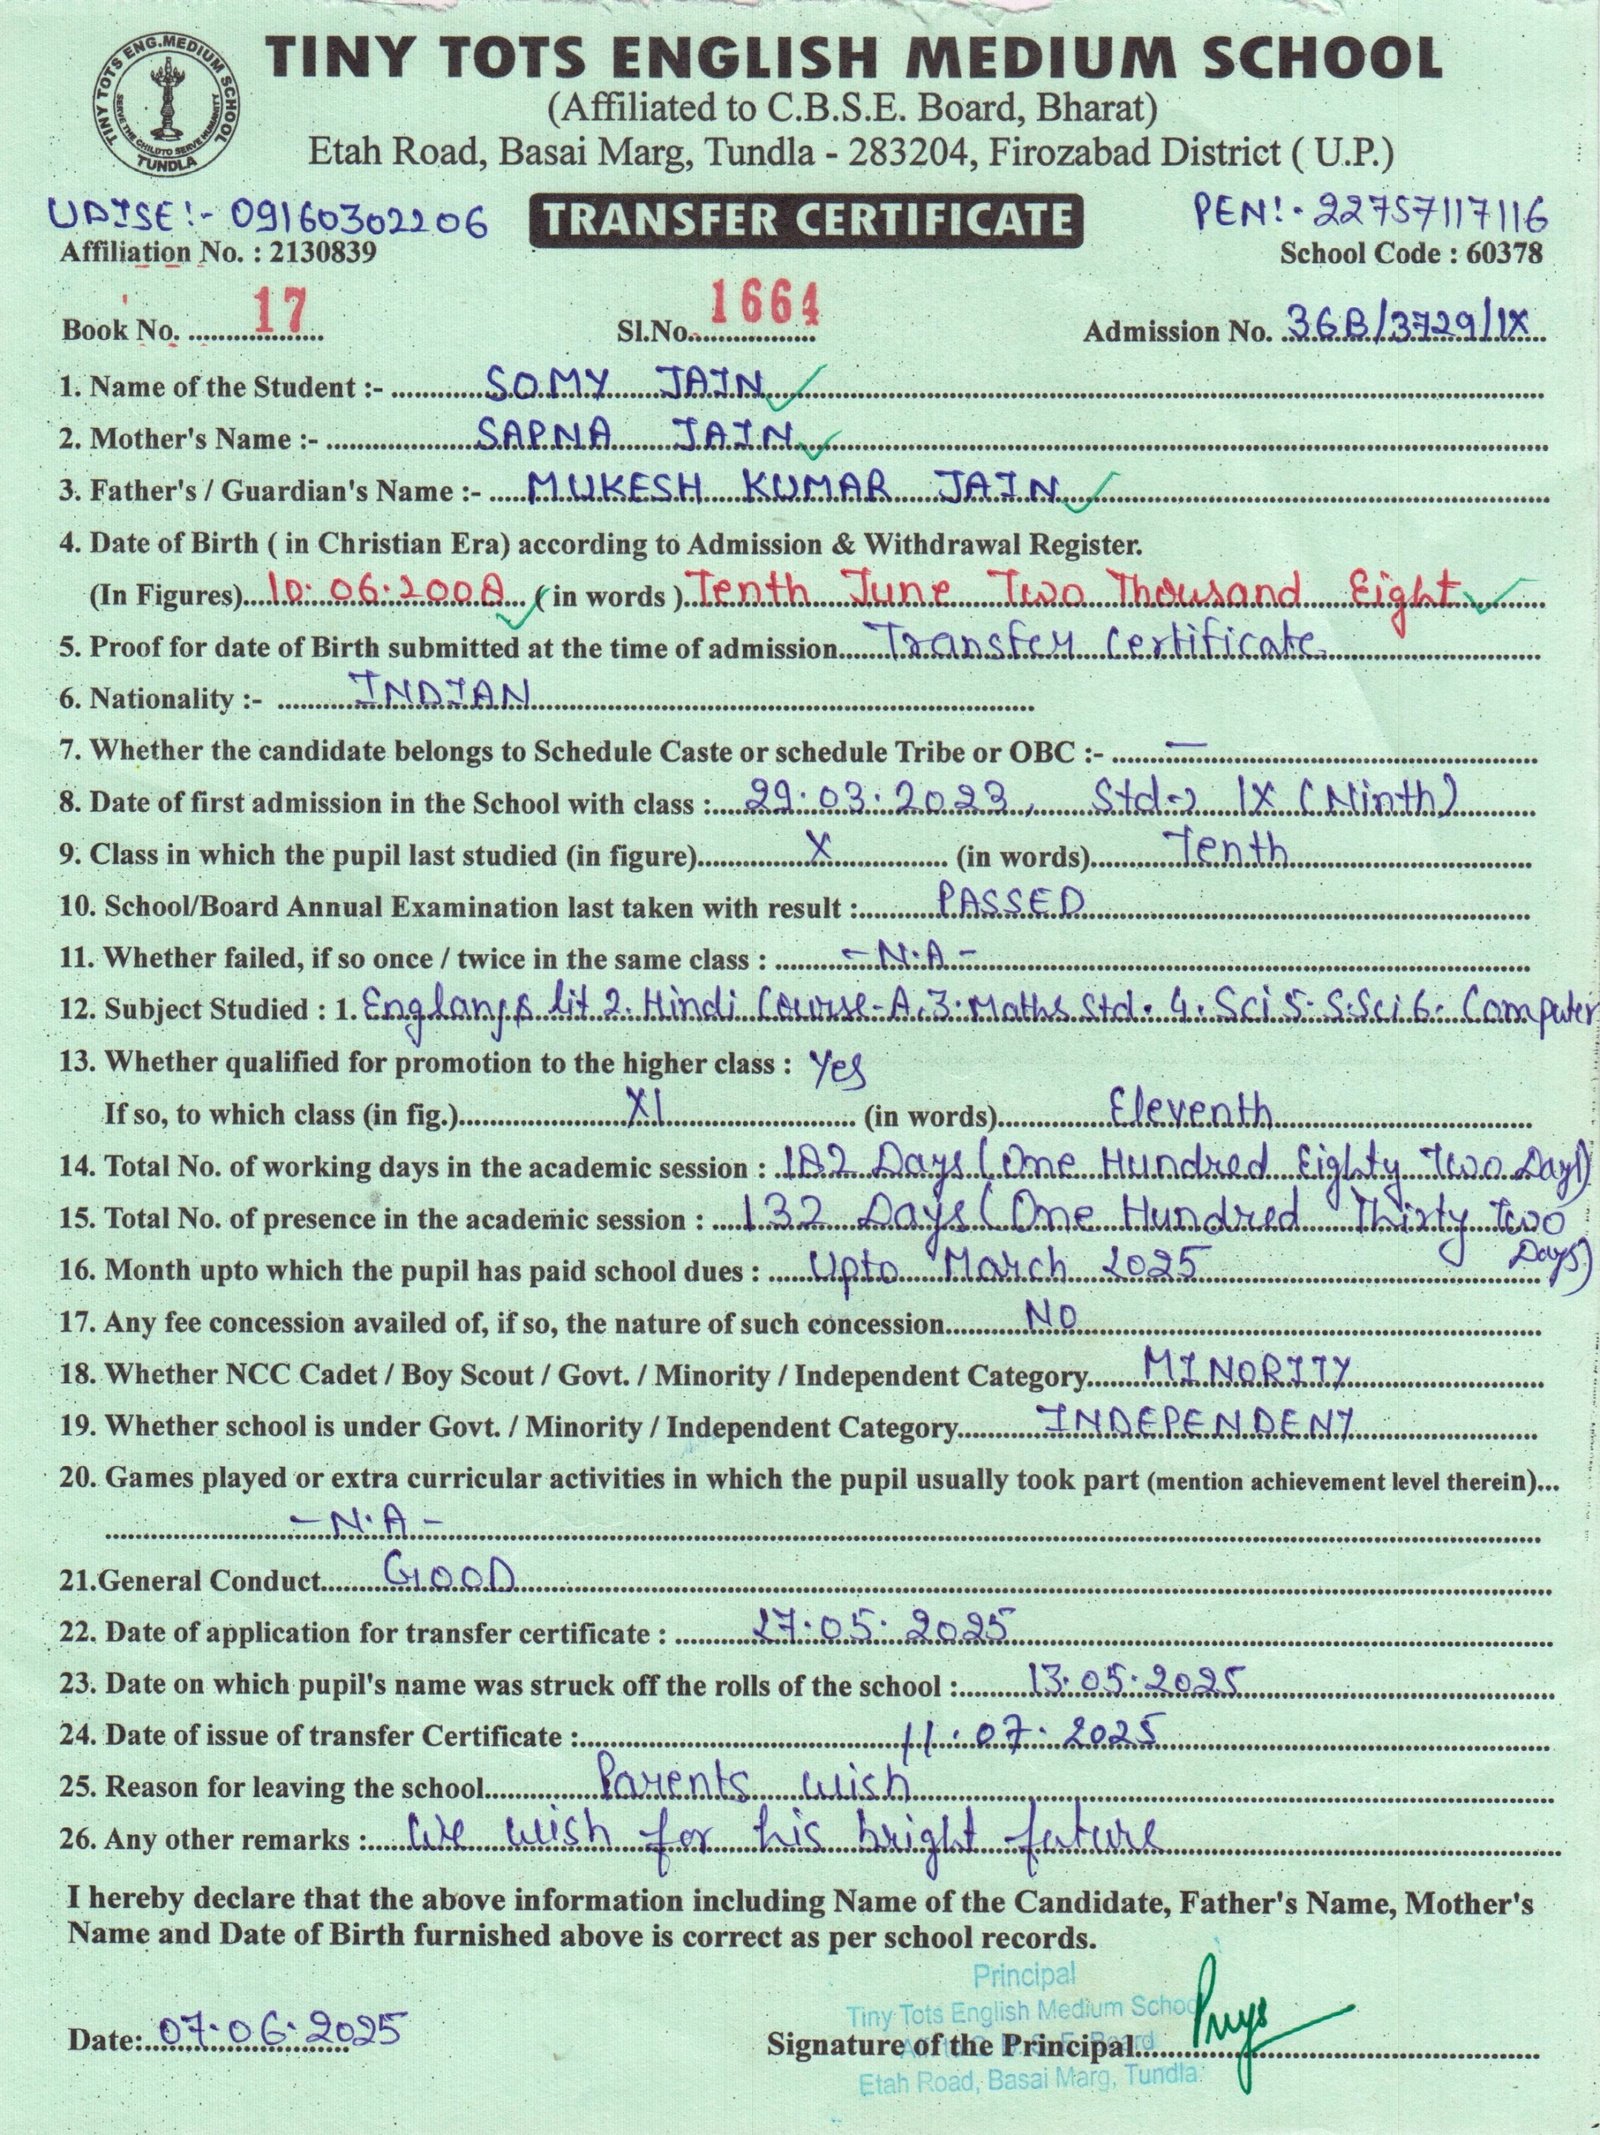 TINY TOTS ENG.MEDIUM SCHOOL
SERVE THE CHILD TO SERVE HUMANITY
TUNDLA
TINY TOTS ENGLISH MEDIUM SCHOOL
(Affiliated to C.B.S.E. Board, Bharat)
Etah Road, Basai Marg, Tundla - 283204, Firozabad District ( U.P.)
UDISE:- 09160302206 TRANSFER CERTIFICATE PEN:- 22757117116
Affiliation No. : 2130839 School Code : 60378
Book No. 17 Sl.No. 1664 Admission No. 36B/3729/IX
1. Name of the Student :- SOMY JAIN
2. Mother's Name :- SAPNA JAIN
3. Father's / Guardian's Name :- MUKESH KUMAR JAIN
4. Date of Birth ( in Christian Era) according to Admission & Withdrawal Register.
(In Figures) 10.06.2008 (in words ) Tenth June Two Thousand Eight
5. Proof for date of Birth submitted at the time of admission Transfer Certificate
6. Nationality :- INDIAN
7. Whether the candidate belongs to Schedule Caste or schedule Tribe or OBC :- —
8. Date of first admission in the School with class : 29.03.2023, Std-> IX (Ninth)
9. Class in which the pupil last studied (in figure) X (in words) Tenth
10. School/Board Annual Examination last taken with result : PASSED
11. Whether failed, if so once / twice in the same class : -N.A-
12. Subject Studied : 1. Eng lang & lit 2. Hindi Course-A. 3. Maths Std. 4. Sci 5. S.Sci 6. Computer
13. Whether qualified for promotion to the higher class : Yes
If so, to which class (in fig.) XI (in words) Eleventh
14. Total No. of working days in the academic session : 182 Days (One Hundred Eighty Two Days)
15. Total No. of presence in the academic session : 132 Days (One Hundred Thirty Two
Days)
16. Month upto which the pupil has paid school dues : Upto March 2025
17. Any fee concession availed of, if so, the nature of such concession NO
18. Whether NCC Cadet / Boy Scout / Govt. / Minority / Independent Category MINORITY
19. Whether school is under Govt. / Minority / Independent Category INDEPENDENT
20. Games played or extra curricular activities in which the pupil usually took part (mention achievement level therein)...
-N.A-
21.General Conduct GOOD
22. Date of application for transfer certificate : 17.05.2025
23. Date on which pupil's name was struck off the rolls of the school : 13.05.2025
24. Date of issue of transfer Certificate : 11.07.2025
25. Reason for leaving the school Parents wish
26. Any other remarks : We wish for his bright future
I hereby declare that the above information including Name of the Candidate, Father's Name, Mother's
Name and Date of Birth furnished above is correct as per school records.
Principal
Tiny Tots English Medium School
Date: 07.06.2025 Signature of the Principal
Board
Etah Road, Basai Marg, Tundla